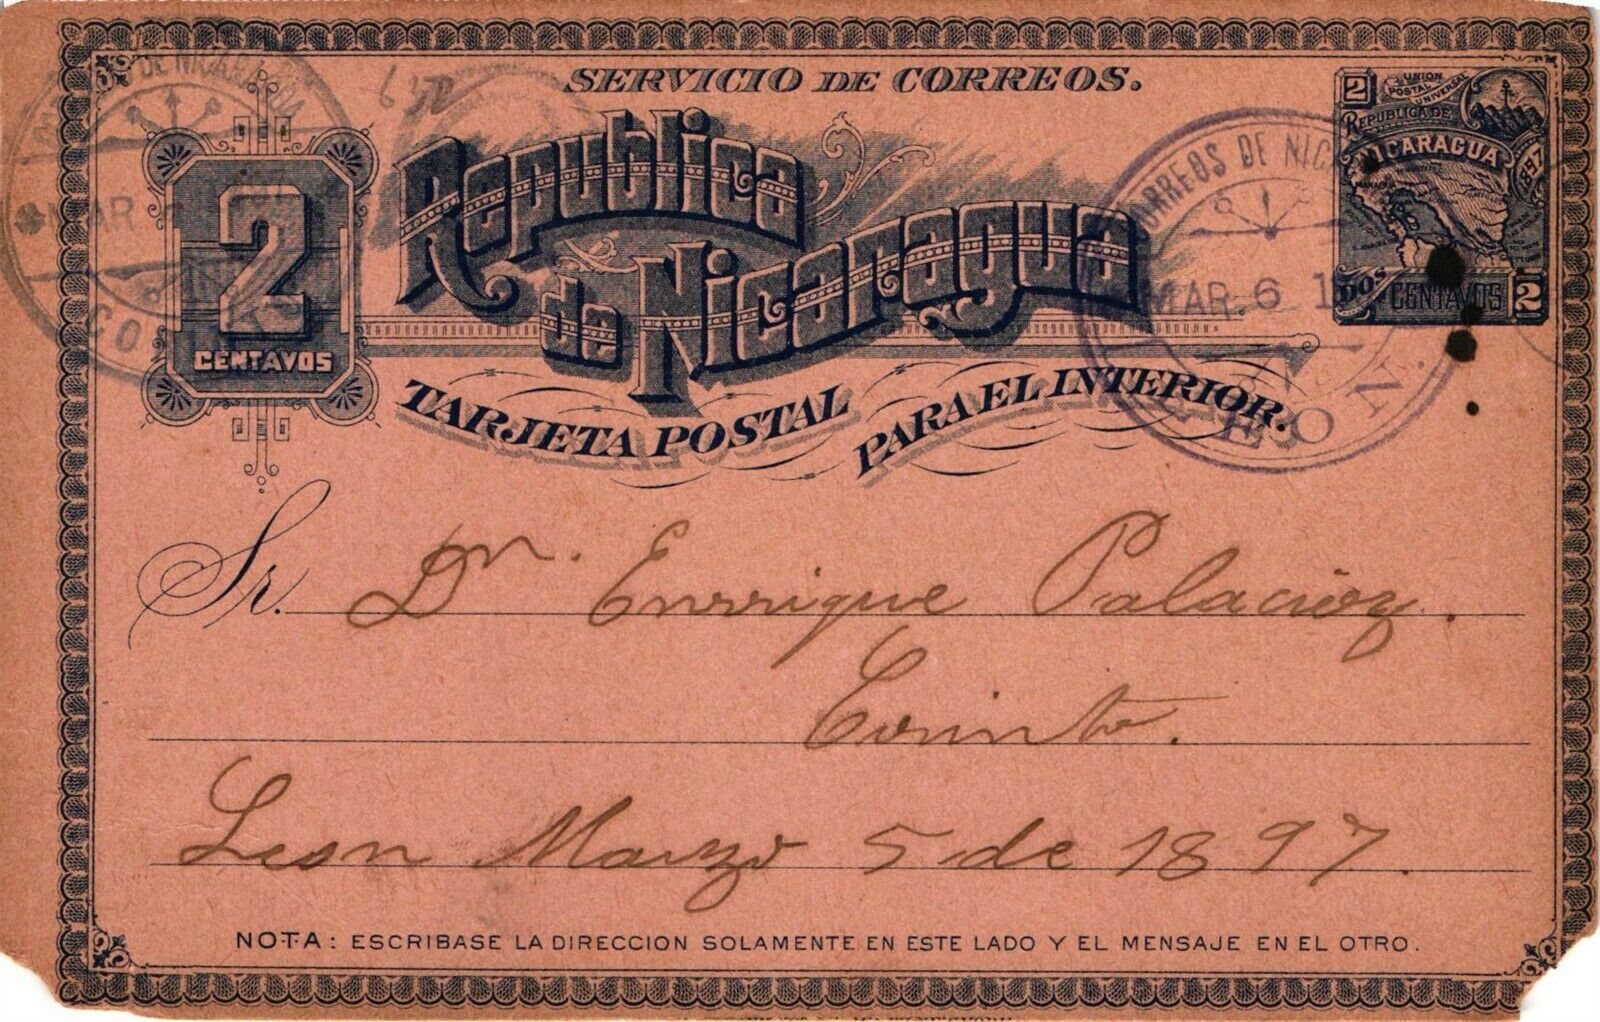 SERVICIO DE CORREOS.
2
CENTAVOS
Republica
de Nicaragua
TARJETA POSTAL PARA EL INTERIOR.
2 UNION POSTAL UNIVERSAL
REPUBLICA DE
NICARAGUA
1897
MANAGUA
DOS CENTAVOS 2
DE NICARAGUA
MAR
CO
CORREOS DE NIC
MAR. 6 1
LEON.
Sr. Dn. Enrrique Palacioz.
Corinto.
Leon Marzo 5 de 1897.
NOTA: ESCRIBASE LA DIRECCION SOLAMENTE EN ESTE LADO Y EL MENSAJE EN EL OTRO.